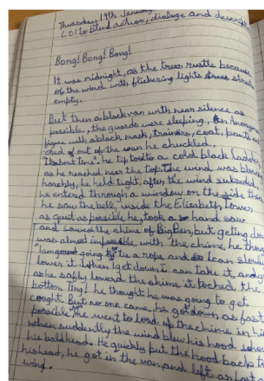 Thursday 19th January
LO: to blend action, dialogue and descrip
Bong! Bong! Bong!
It was midnight, as the trees rustle because
of the wind with flickering lights street
empty.
But then a black van with near silence as
possible, the guards were sleeping, An
figure with a black mask, trainers, coat,
out of the van he chuckled,
he tip toed to a cold black ladder
as he reached near the top the wind was blowing
horribly, he held tight, after the wind
he entered through a window on the side then
he saw the bell, inside the Elizabeth Tower
as quiet as possible he, took a hand saw
and sawed the chime of Big Ben, but getting down
was almost impossible with the chime, he thought
going to tie a rope and lean slowly
lower it then I get down I can take it and
as he softly lowered the chime it toched the
bottom Ting! he thought he was going to get
cought. But no one came, he go down as fast
possible He went to load up the chime in his
when suddenly the wind blew his hood
his bald head. He quickly put the hood back to
his head, he got in the van and left as fast a
wing.